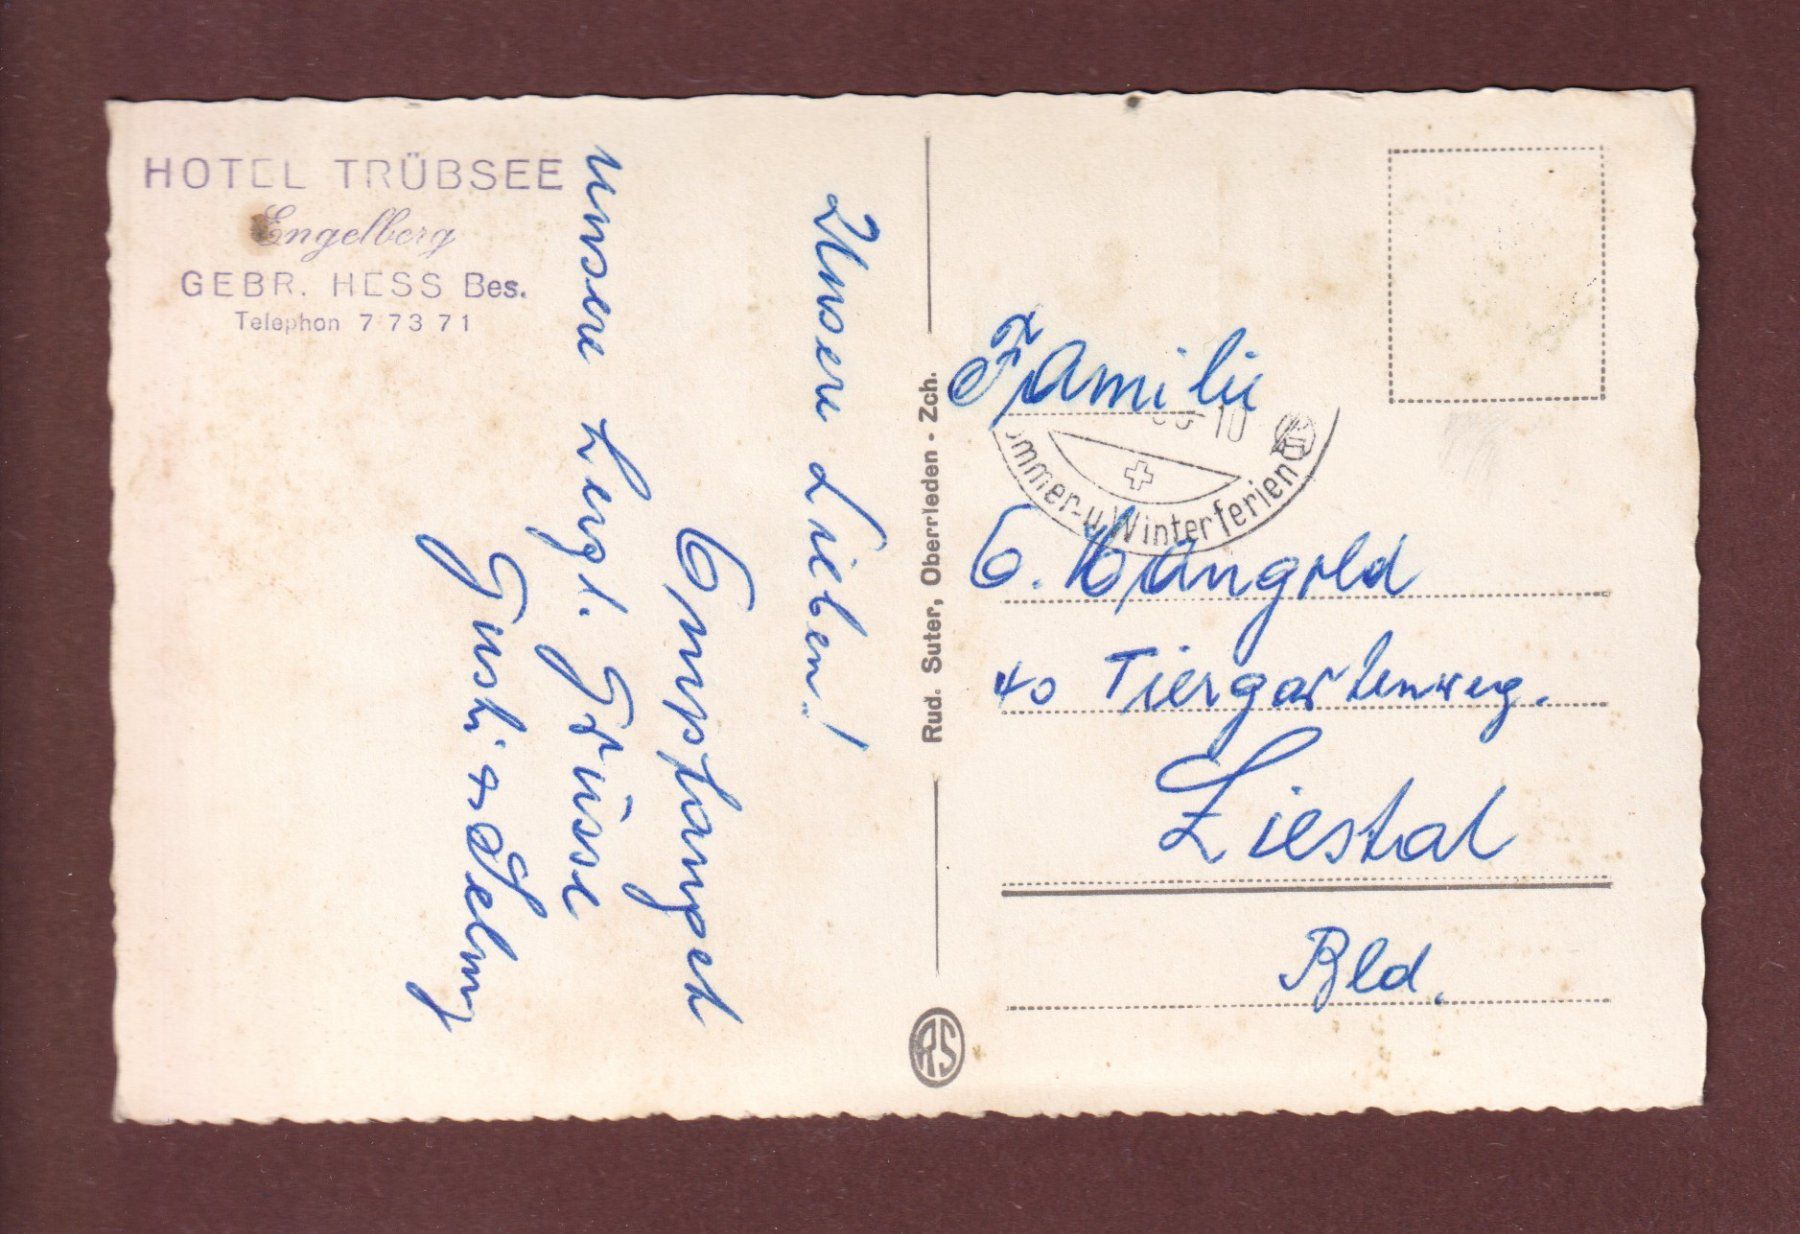 HOTEL TRÜBSEE
Engelberg
GEBR. HESS Bes.
Telephon 7 73 71
Unsere Lieben!
Empfanget
unsere herzl. Grüsse
Gusti &
Rud. Suter, Oberrieden - Zch.
RS
10
ommer- u. Winterferien
Familie
E. Mangold
40 Tiergartenweg.
Liestal
Bld.